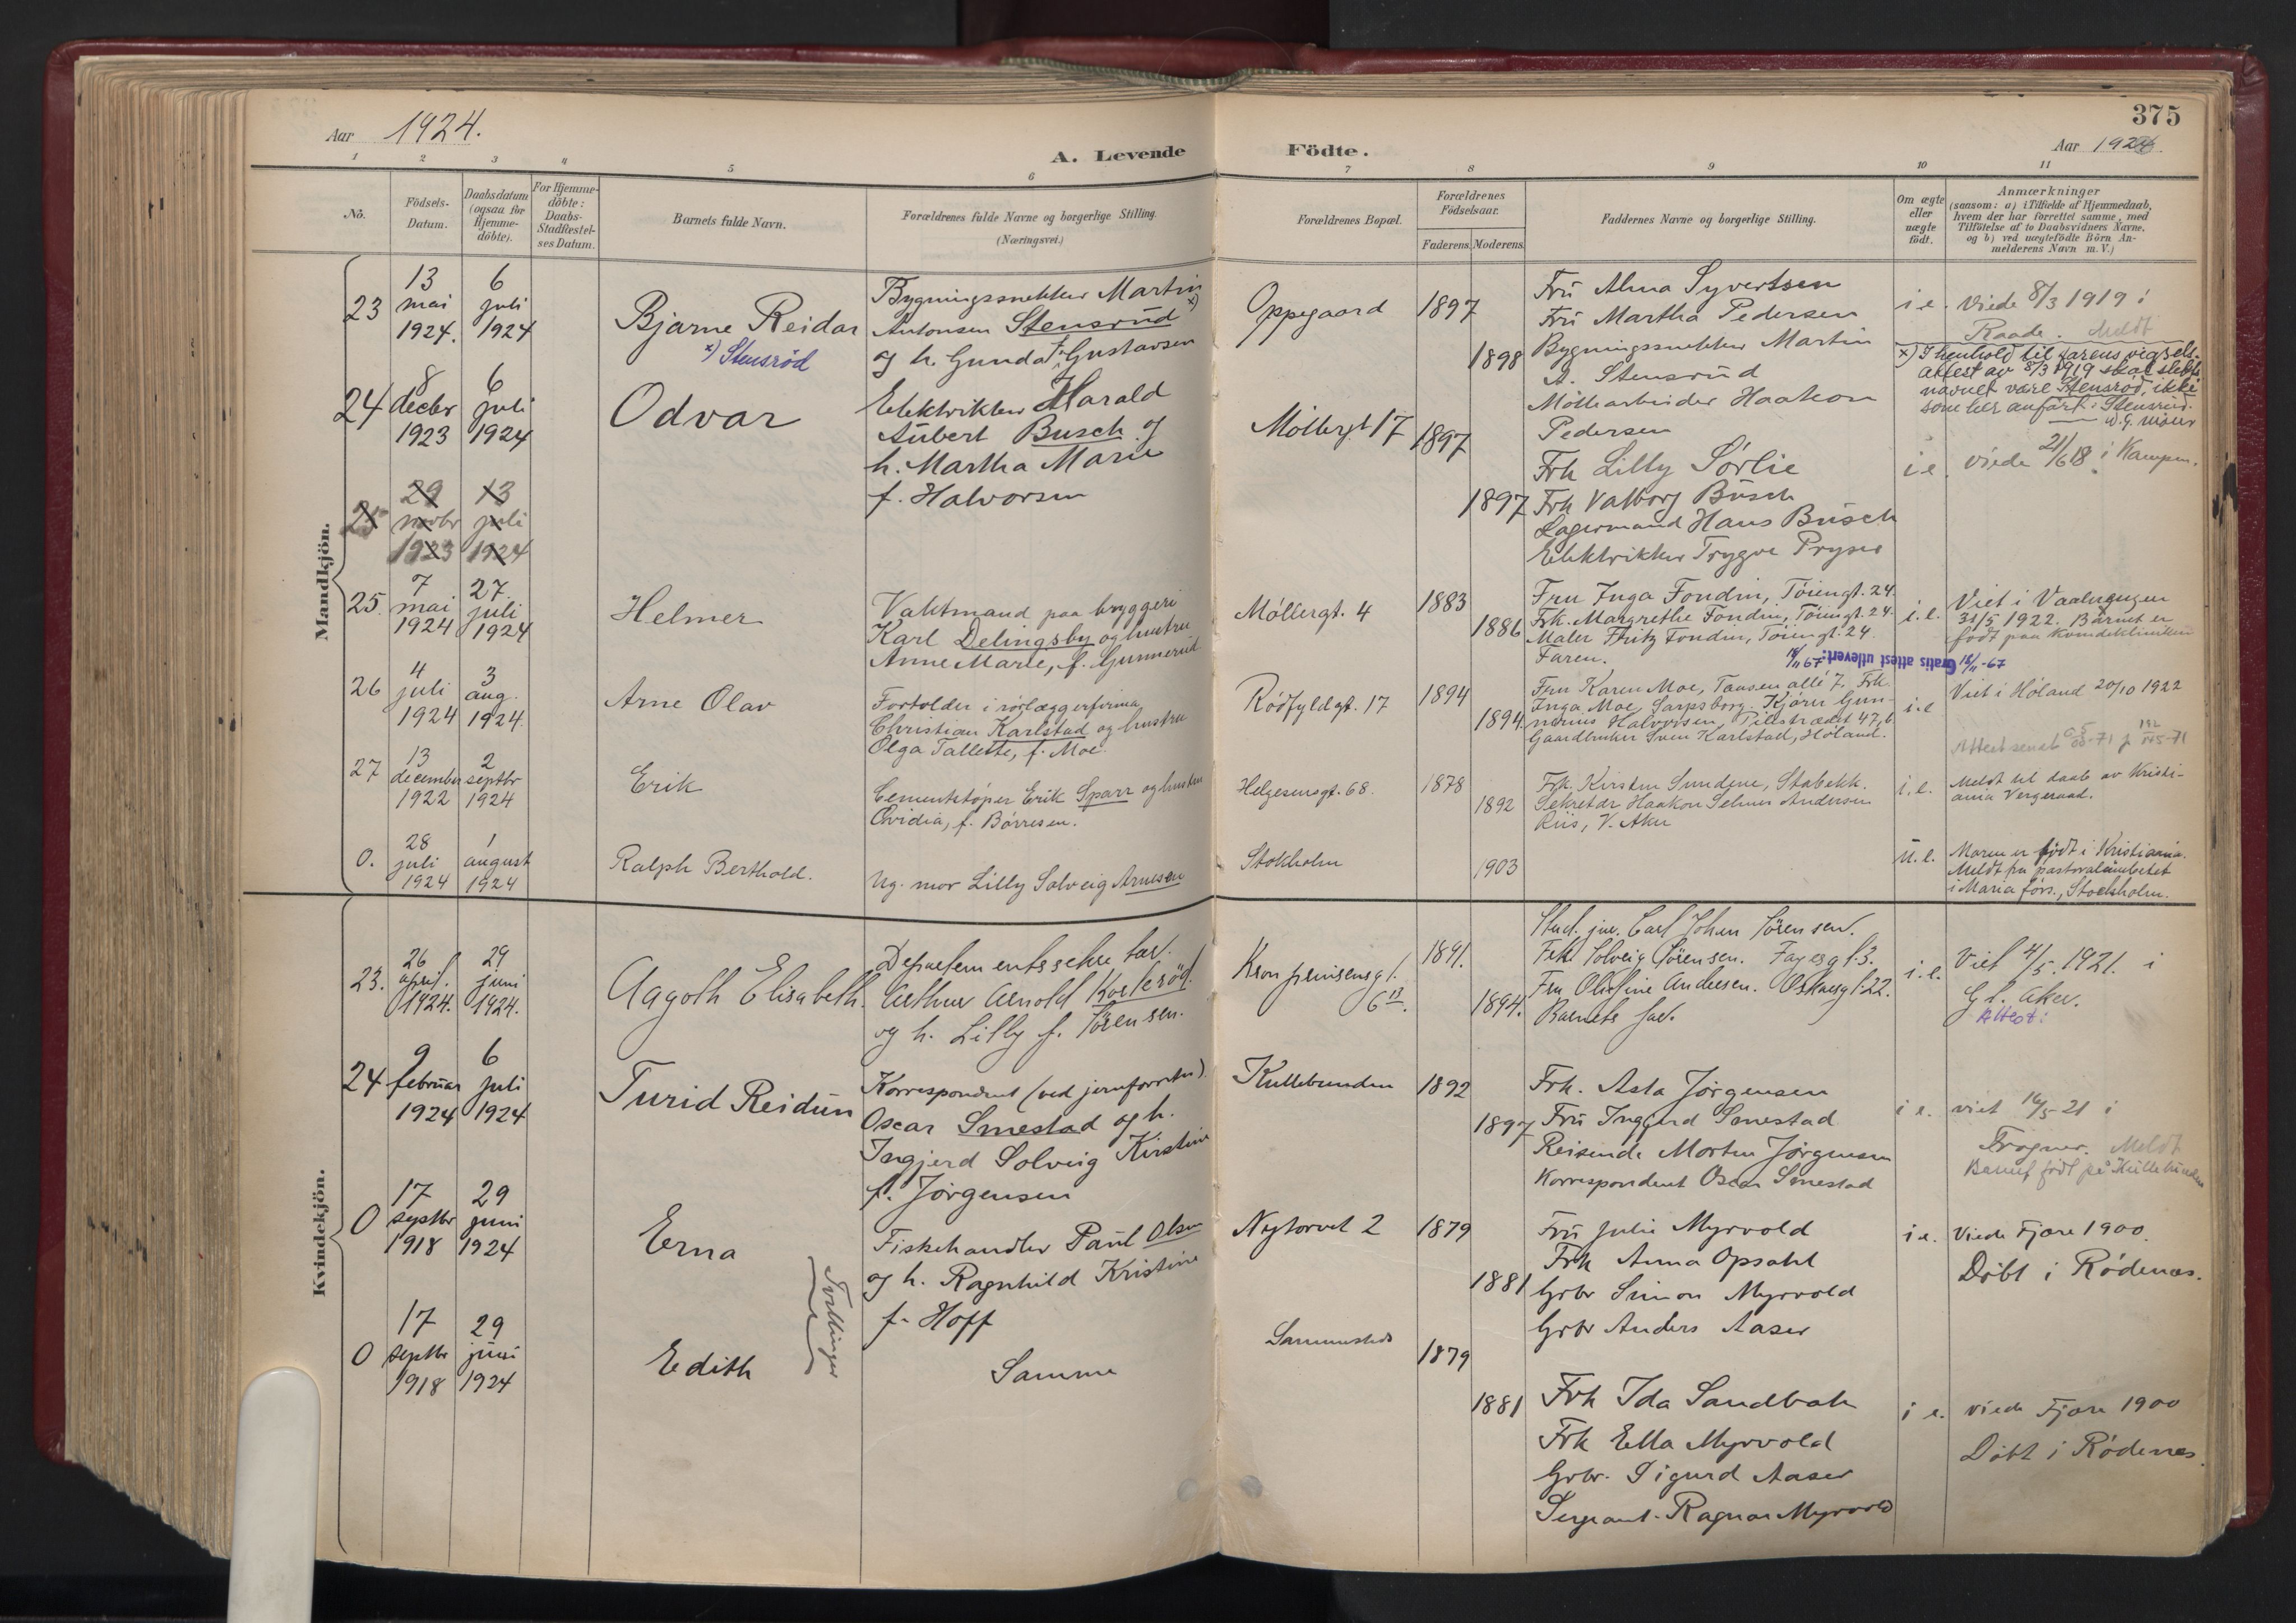 375
Aar 1924.
A. Levende Födte.
Aar 1924.
1 2 3 4 5 6 7 8 9 10 11
No.
Födsels-
Datum.
Daabsdatum
(ogsaa for
Hjemme-
döbte).
For Hjemme-
döbte:
Daabs-
Stadfæstel-
ses Datum.
Barnets fulde Navn.
Forældrenes fulde Navne og borgerlige Stilling.
(Næringsvei.)
Forældrenes Bopæl.
Forældrenes
Födselsaar.
Faderens. Moderens.
Faddernes Navne og borgerlige Stilling.
Om ægte
eller
uægte
födt.
Anmærkninger
(saasom: a) i Tilfælde af Hjemmedaab,
hvem der har forrettet samme, med
Tilföielse af to Daabsvidners Navne,
og b) ved uægtefödte Börn An-
melderens Navn m.V.)
Mandkjön.
23
13
mai
1924.
6
juli
1924
Bjarne Reidar
x) Stensröd
Bygningssnekker Martin
Antonsen Stensrud x)
og h. Gunda f. Gustavsen
Oppegaard
1897
1898
Fru Alma Syvertsen
Fru Martha Pedersen
Bygningssnekker Martin
A. Stensrud
Møllearbeider Haakon
Pedersen
i e.
Viede 8/3 1919 i
Raade. Meldt
x) I henhold til farens vigsels-
attest av 8/3 1919 skal slekts
navnet være Stensröd, ikke
som her anført: Stensrud.
24
8
decbr
1923
6
juli
1924
Odvar
Elektriker Harald
Aubert Busch og
h. Martha Marie
f. Halvorsen
Møllergt 17
1897
1897
Frk Lilly Sørlie
Frk Valborg Busch
Lagermand Hans Busch
Elektriker Trygve Pryser
i e.
viede 21/6 18 i Kampen.
25
29
novbr
1923
13
juli
1924
25.
7
mai
1924
27.
juli
1924
Helmer
Vaktmand paa bryggeri
Karl Delingsby og hustru
Anne Marie, f. Gunnerud
Møllergt. 4
1883
1886
Fru Inga Fondin, Töiengt. 24.
Frk. Margrethe Fondin, Töiengt. 24.
Maler Fritz Fondin, Töiengt. 24.
Faren.
i. e.
Viet i Vaalerengen
31/5 1922. Barnet er
født paa Kvindeklinikken
Gratis attest utlevert: 18/11 67
18/11-67
26
4
juli
1924
3
aug.
1924.
Arne Olav
Fortolder i rørlæggerfirma
Christian Karlstad og hustru
Olga Tallette, f. Moe.
Rødfyldgt. 17
1894
1894.
Fru Karen Moe, Taasen allé 7. Frk.
Inga Moe, Sarpsborg. Kjörer Gun-
nerius Halvorsen, Pilestrædet 47, b
Gaardbruker Sven Karlstad, Høland.
i. e
Viet i Höland 20/10 1922
27
13
december
1922
2
septbr
1924
Erik
Cementstöper Erik Sparr og hustru
Ovidia, f. Børresen.
Helgesensgt. 68.
1878
1892
Frk. Kirsten Sundene, Stabekk.
Sekretær Haakon Selmer Andersen
Riis, V. Aker
i. e.
Meldt til daab av Kristi-
ania Vergeraad.
0.
28
juli
1924
1
august
1924
Ralph Berthold.
Ug. mor Lilly Solveig Arnesen
Stokholm
1903
u. e.
Moren er født i Kristiania.
Meldt fra pastoralæmbetet
i Maria förs., Stockholm.
Kvindekjön.
23.
26
april.
1924.
29
juni
1924.
Aagoth Elisabeth.
Departementssekretær.
Arthur Arnold Korterød.
og h. Lilly f. Sørensen.
Kronprinsensgt.
6 13.
1891.
1894.
Stud. jur. Carl Johan Sörensen.
Frk. Solveig Sörensen. Fayesgt. 3.
Fru Olufine Andresen. Oskarsgt. 22.
Barnets far.
i. e.
Viet 4/5. 1921. i
Gl. Aker.
Attest:
24
9
februar
1924
6
juli
1924
Turid Reidun
Korrespondent (ved jernforretn.)
Oscar Smestad og h.
Ingjerd Solveig Kirstine
f. Jørgensen
Kullebunden
1892
1897
Frk. Asta Jørgensen
Fru Ingjerd Smestad
Reisende Morten Jørgensen
Korrespondent Oscar Smestad
i e.
viet 16/5-21 i
Frogner. Meldt
Barnet født på Kullebunden
0
17
septbr
1918
29
juni
1924
Erna
Tvillinger
Fiskehandler Paul Olsen
og h. Ragnhild Kristine
f. Hoff
Nytorvet 2
1879
1881
Fru Julie Myrvold
Frk Anna Opsahl
Grbr Simon Myrvold
Grbr Anders Aaser
i e.
Viede Fjære 1900.
Döbt i Rödenes.
0
17
septbr
1918
29
juni
1924
Edith
Samme
Sammesteds
1879
1881
Frk Ida Sandbæk
Frk Ella Myrvold
Grbr. Sigurd Aaser
Sergeant. Ragnar Myrvold
i e.
viede Fjære 1900
Döbt i Rödenes.